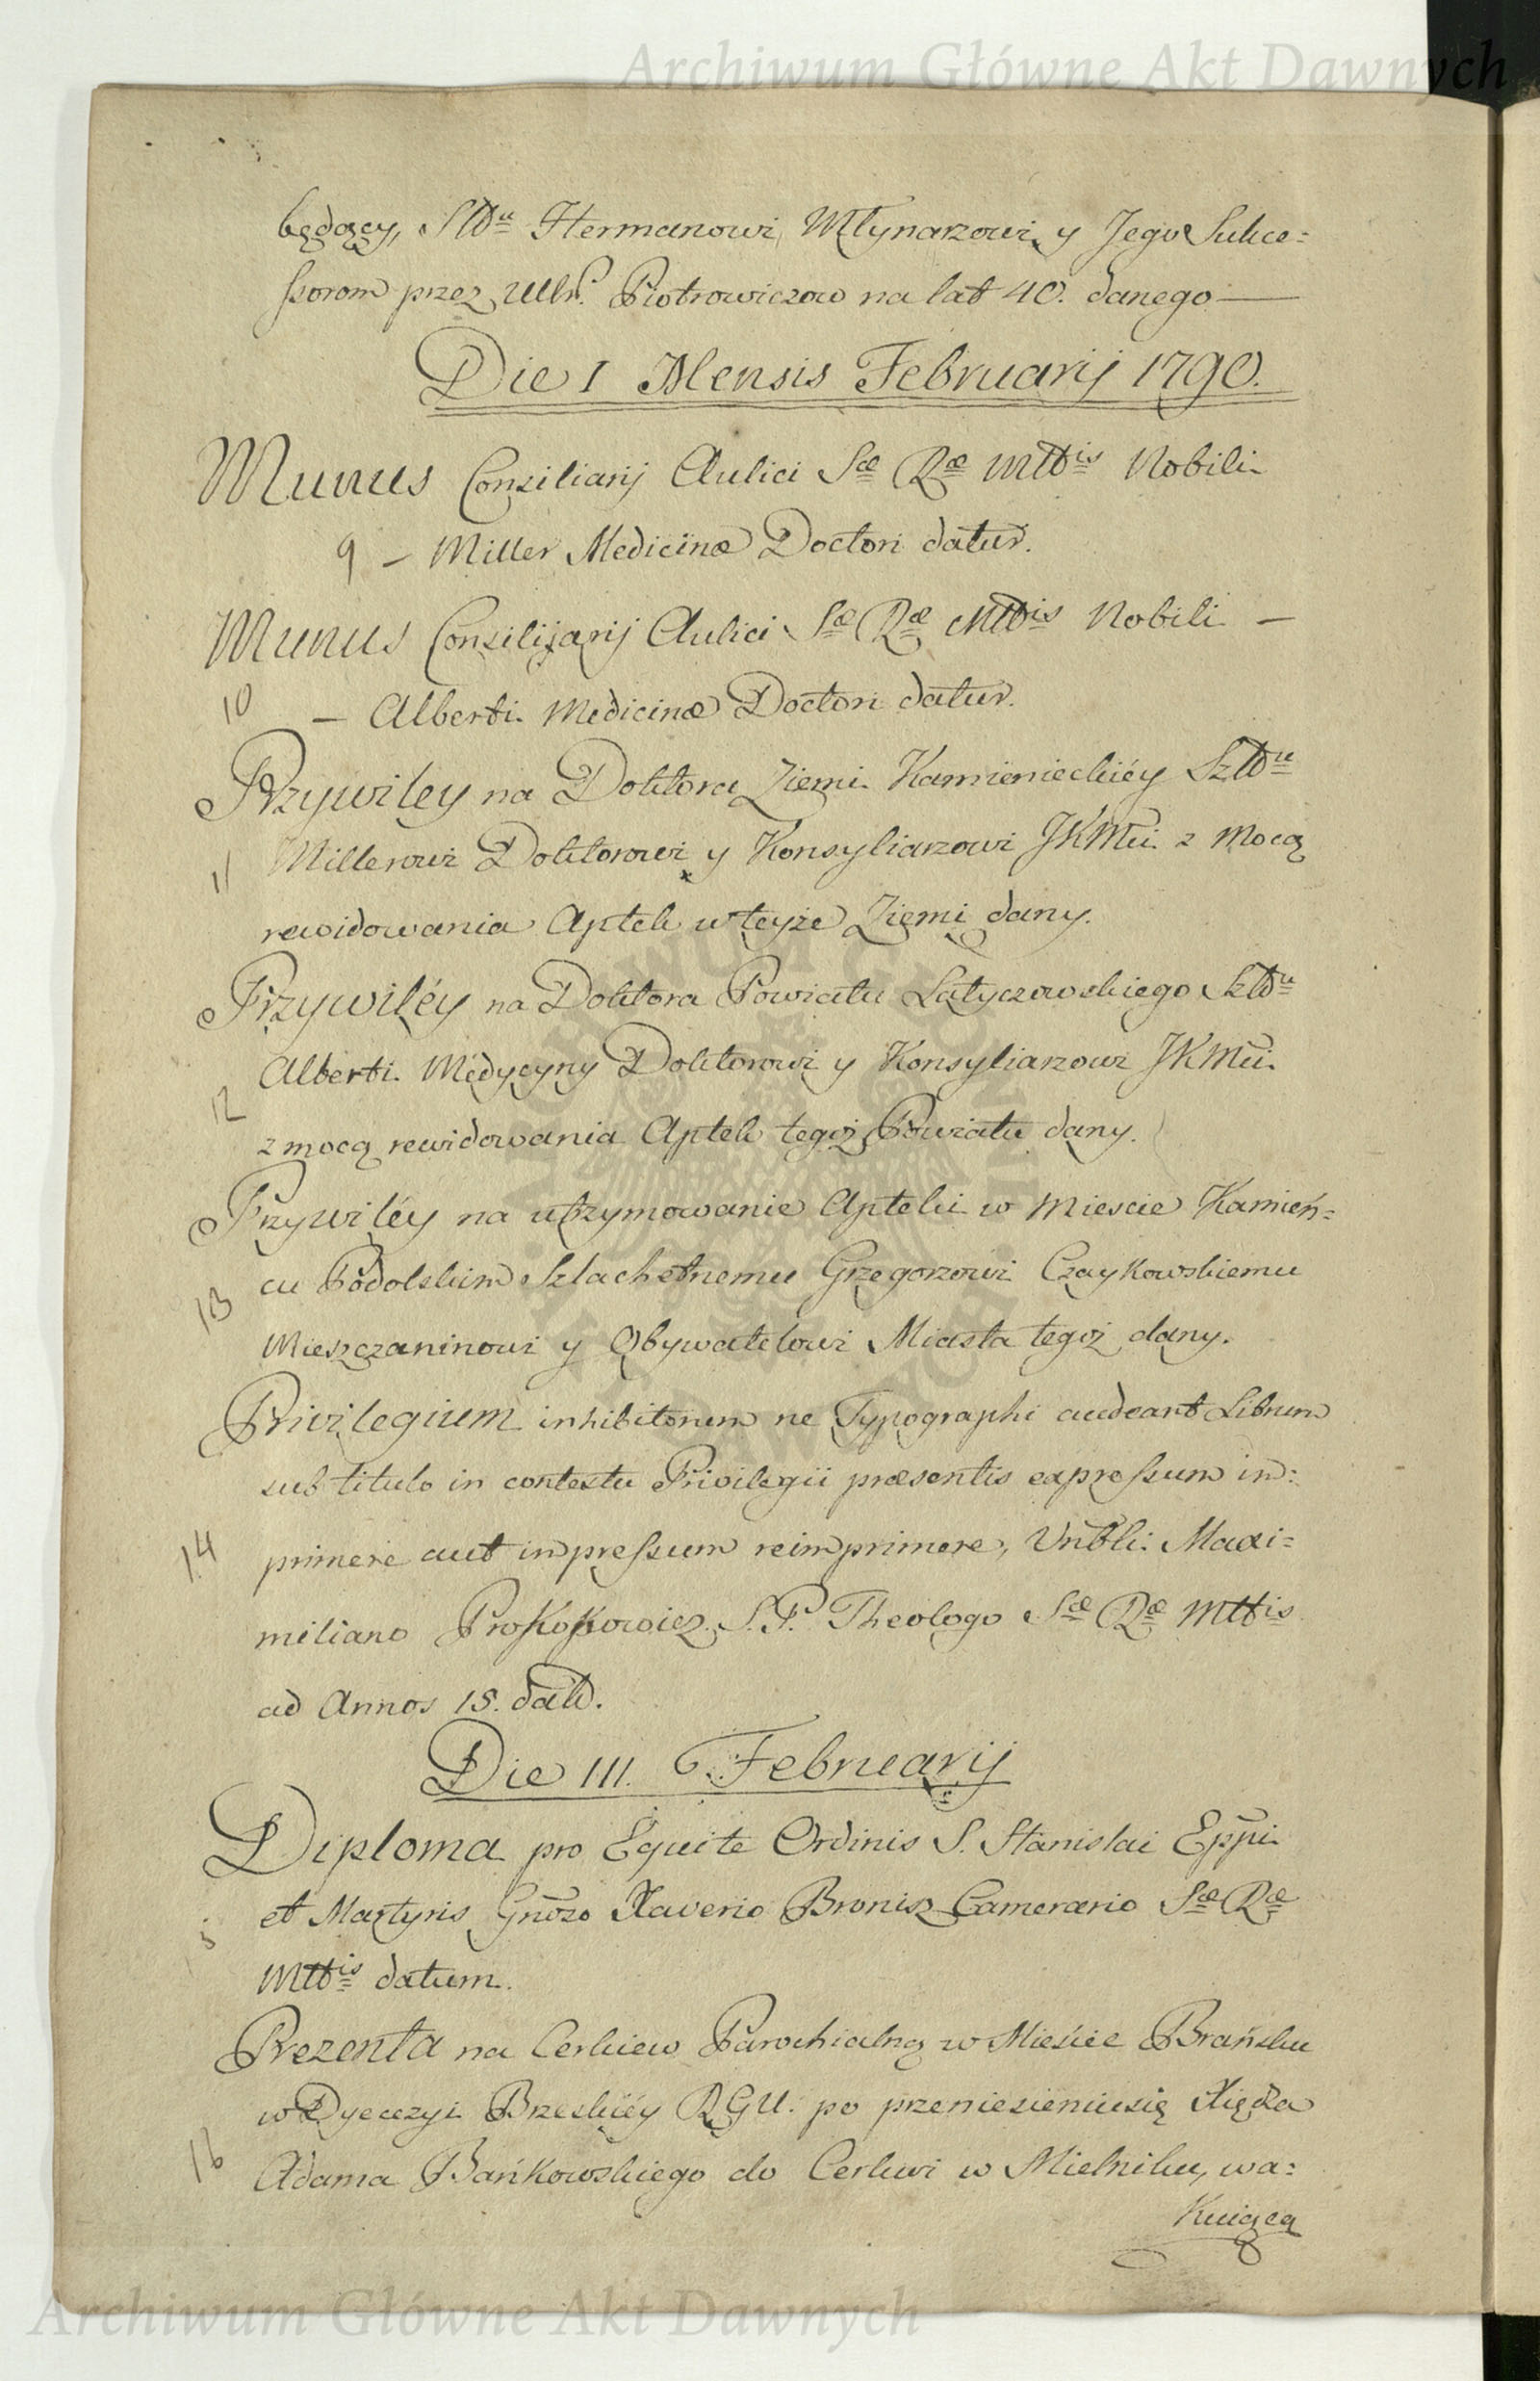 Archiwum Główne Akt Dawnych
będący, Sltdu Hermanowi Młynarzowi y Jego Sukce=
ssorom przez Ullr. Piotrowiczow na lat 40. danego —
Die I Mensis Februarij 1790.
Munus Consiliarij Aulici Sæ Ræ Mttis Nobili
9 – Miller Medicinæ Doctori datur.
Munus Consilijarij Aulici Sæ Ræ Mttis Nobili –
10 – Alberti Medicinæ Doctori datur.
Przywiley na Doktora Ziemi Kamienieckiéy Szltdu
11 Millerowi Doktorowi y Konsyliarzowi JKMci z mocą
rewidowania Aptek w teyże Ziemi dany.
Przywiléy na Doktora Powiatu Latyczowskiego Szltdu
Alberti Médycyny Doktorowi y Konsyliarzowi JKMci
12 z mocą rewidowania Aptek tegoż Powiatu dany.
Przywiléy na utrzymowanie Apteki w Miescie Kamień=
13 cu Podolskim Szlachetnemu Grzegorzowi Czaykowskiemu
Mieszczaninowi y Obywatelowi Miasta tegoż dany.
Privilegium inhibitorium ne Typographi audeant Librum
sub titulo in contextu Privilegii præsentis expressum im=
14 primere aut impressum reimprimere, Vnbli: Maxi=
miliano Prokopowicz S.P. Theologo Sæ Ræ Mttis
ad Annos 15. datt.
Die III. Februarij
Diploma pro Equite Ordinis S. Stanislai Eppi
et Martyris Gnoso Xaverio Bronisz Camerario Sæ Ræ
5 Mttis datum.
Prezenta na Cerkiew Parochialną w Mieście Brańsku
w Dyecezyi Brzeskiéy RGU. po przeniesieniu się Xiędza
16 Adama Bańkowskiego do Cerkwi w Mielniku, wa=
Kuiącą
Archiwum Główne Akt Dawnych